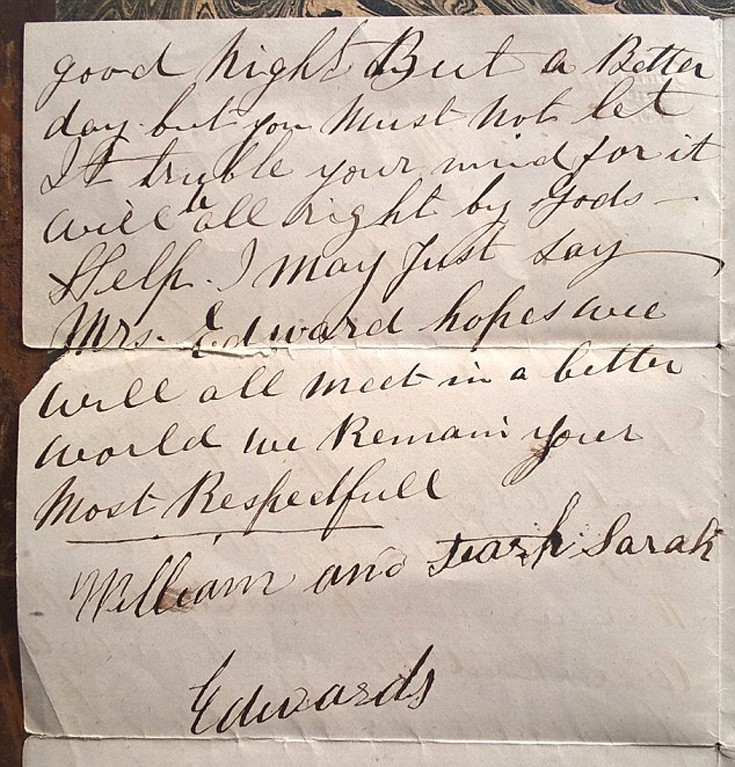 good Night But a Better
day. but you Must Not let
It truble your mind for it
will be all right by Gods
Help. I may Just Say
Mrs. Edward hopes wee
will all meet in a better
world we Remain your
Most Respectfull
William and Sarah
Edwards